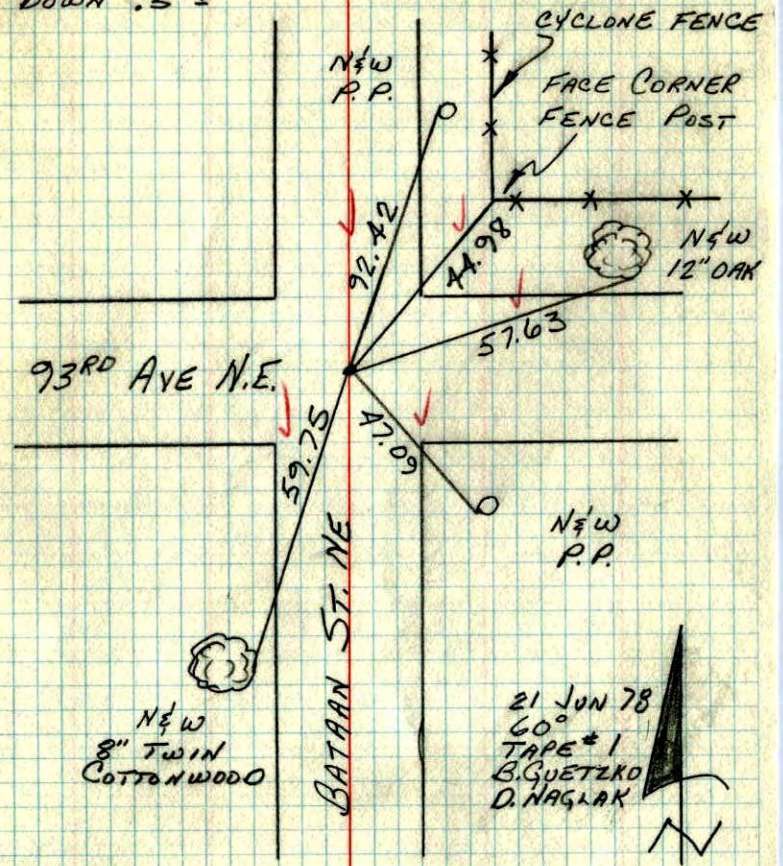 DOWN .5 ±
CYCLONE FENCE
N&W
P.P.
FACE CORNER
FENCE POST
92.42
44.98
N&W
12" OAK
57.63
93RD AVE N.E.
59.75
47.09
N&W
P.P.
BATAAN ST. NE
N&W
8" TWIN
COTTONWOOD
21 JUN 78
60°
TAPE #1
B. GUETZKO
D. NAGLAK
N